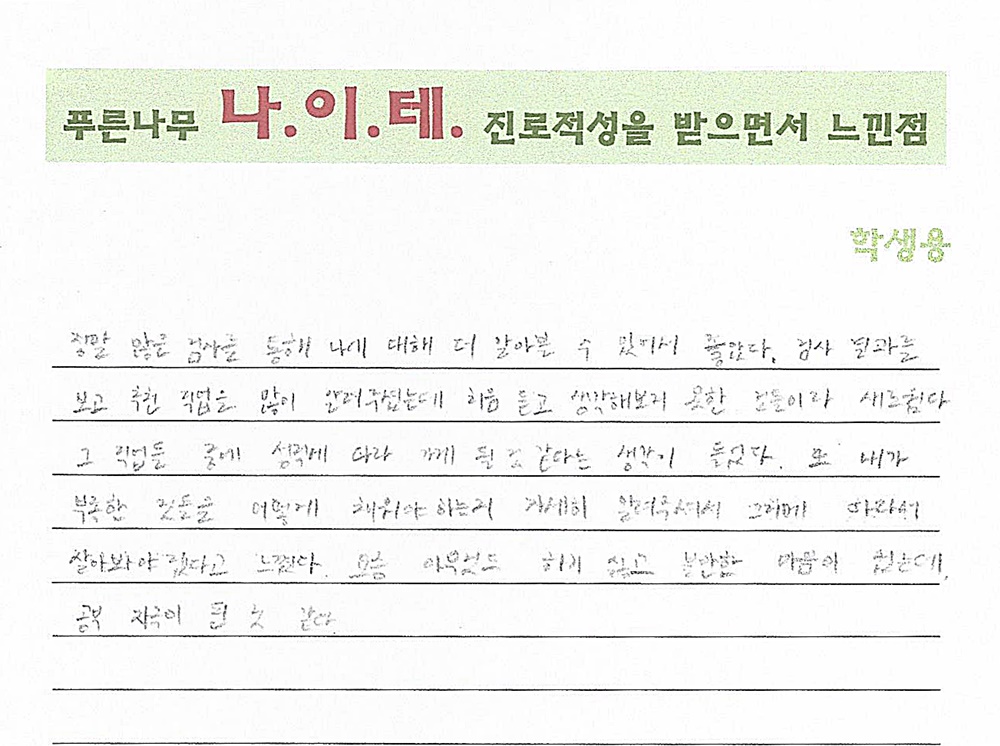 푸른나무 나.이.테. 진로적성을 받으면서 느낀점
학생용
정말 많은 검사를 통해 나에 대해 더 알아볼 수 있어서 좋았다. 검사 결과를
보고 추천 직업을 많이 알려주셨는데 처음 듣고 생각해보지 못한 것들이라 새로웠다
그 직업들 중에 성적에 따라 가게 될 것 같다는 생각이 들었다. 또 내가
부족한 것들을 어떻게 채워야 하는지 자세히 알려주셔서 그거에 따라서
살아봐야 겠다고 느꼈다. 요즘 아무것도 하기 싫고 불안한 마음이 컸는데,
공부 자극이 된 것 같다.